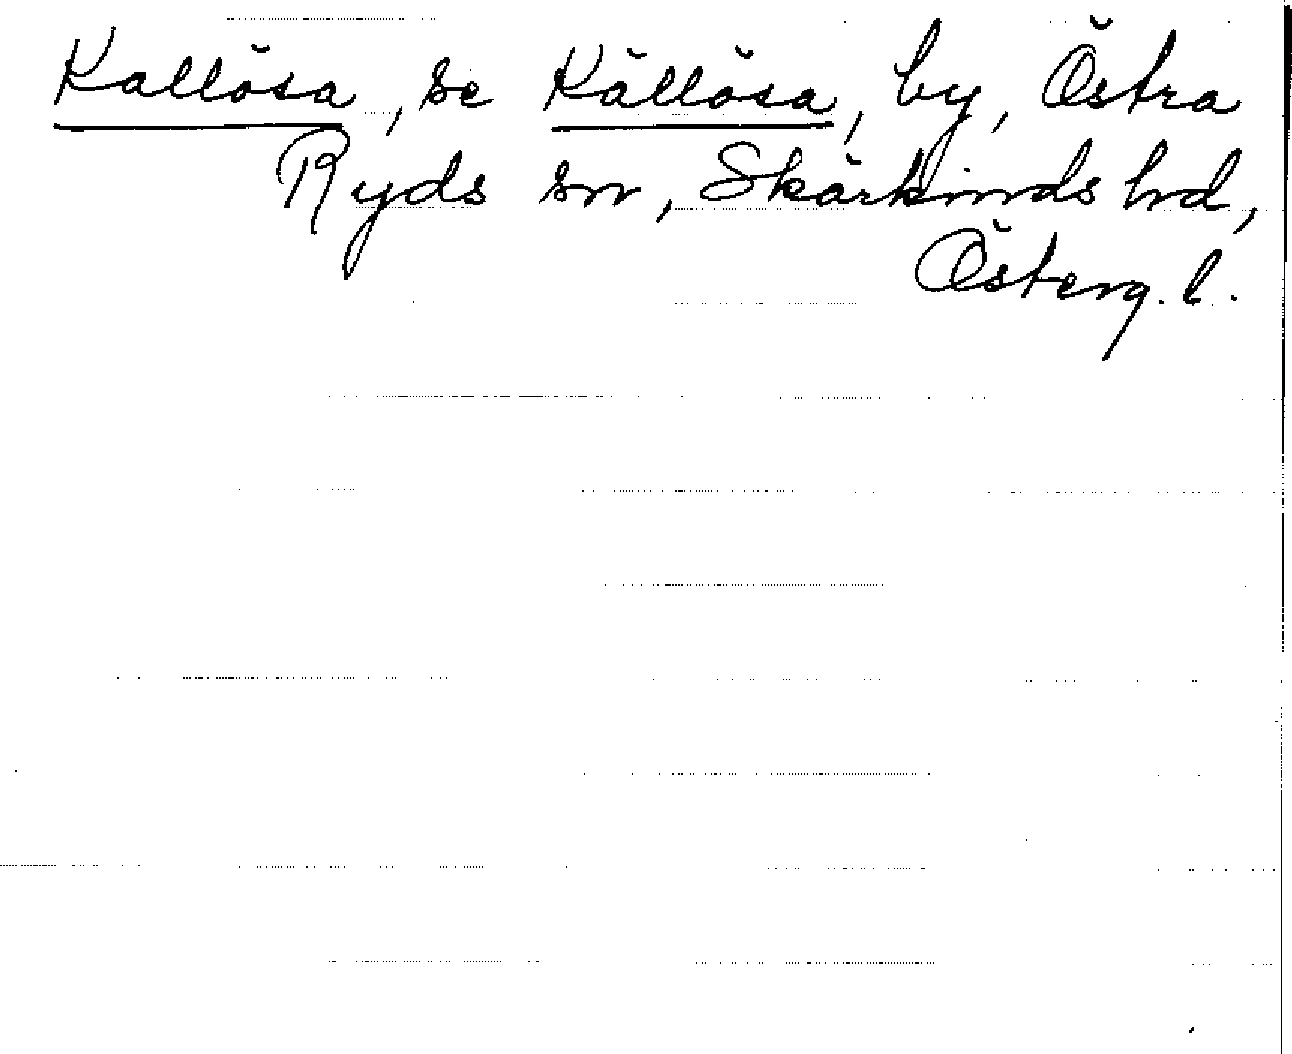 Kallösa, se Källösa, by, Östra
Ryds sn, Skärkinds hd,
Österg. l.